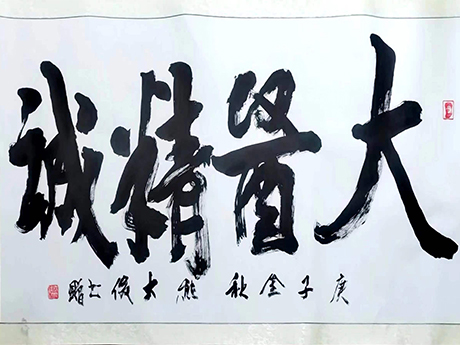 大醫精誠
庚子金秋 熊大俊书赠